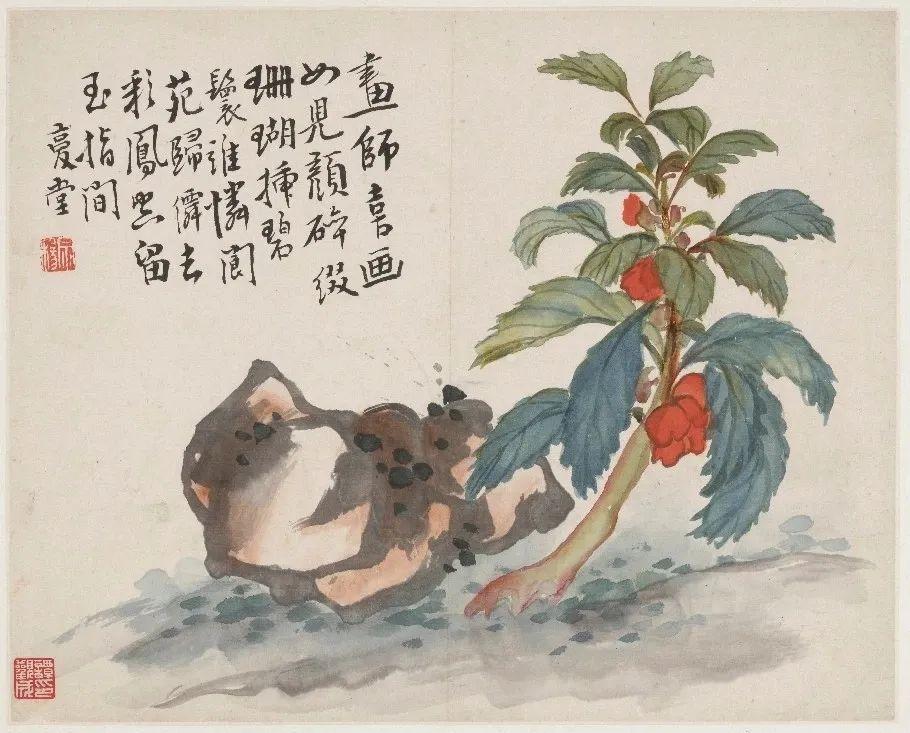 畫師喜画
如見顏碎綴
珊瑚插碧
鬟誰憐閬
苑歸僊去
彩鳳空留
玉指間
堂
譚觀成印